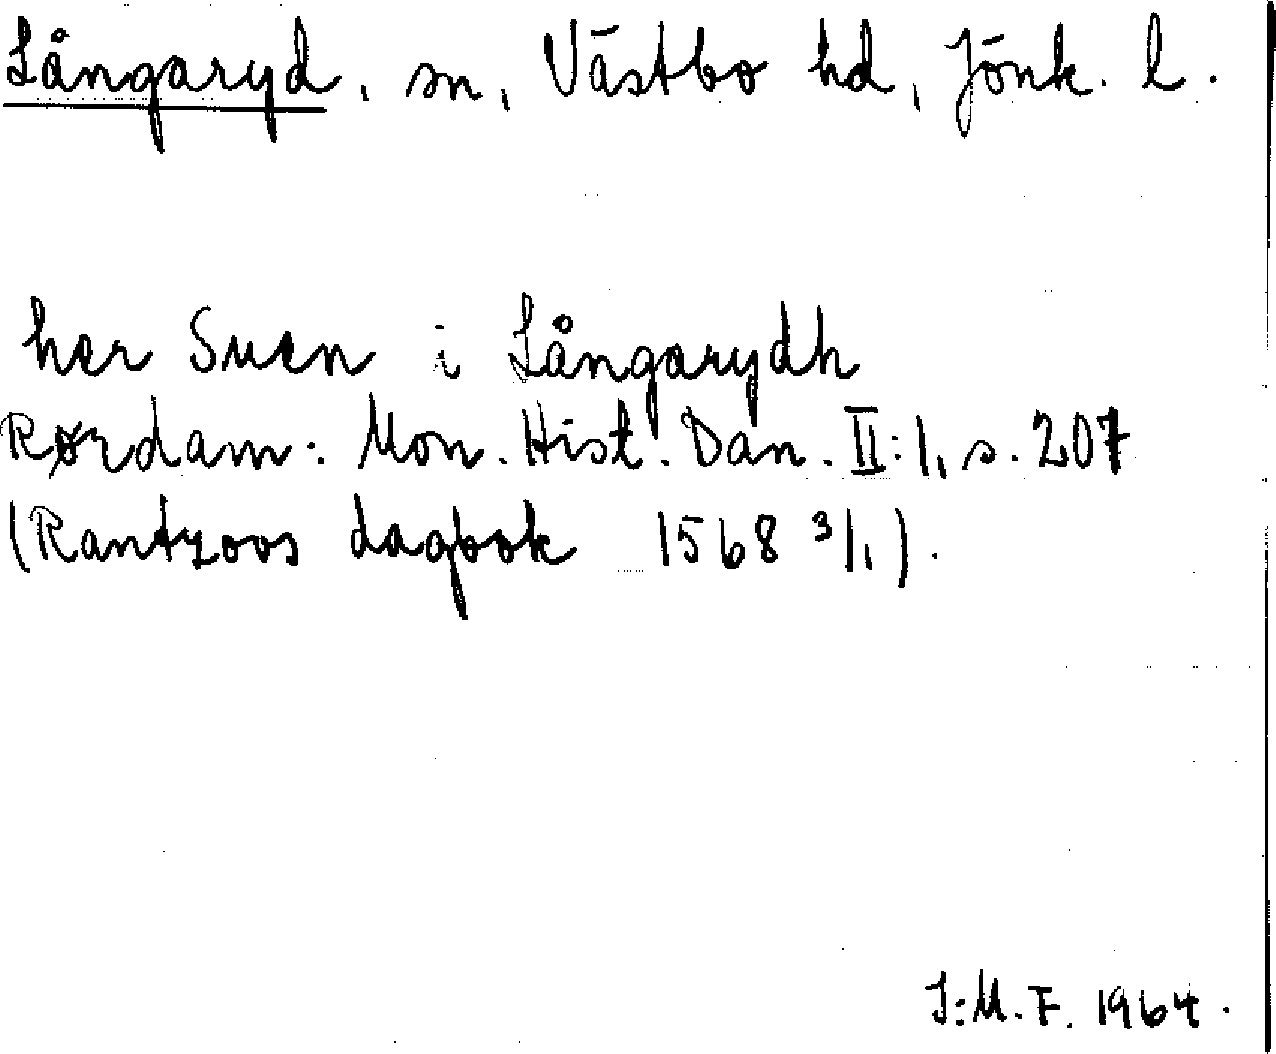 Långaryd, sn, Västbo hd, Jönk. l.
her Suen i Långarydh
Rørdam: Mon. Hist. Dan. II:1, s. 207
(Rantzoos dagbok 1568 3/1).
I:M.F. 1964.